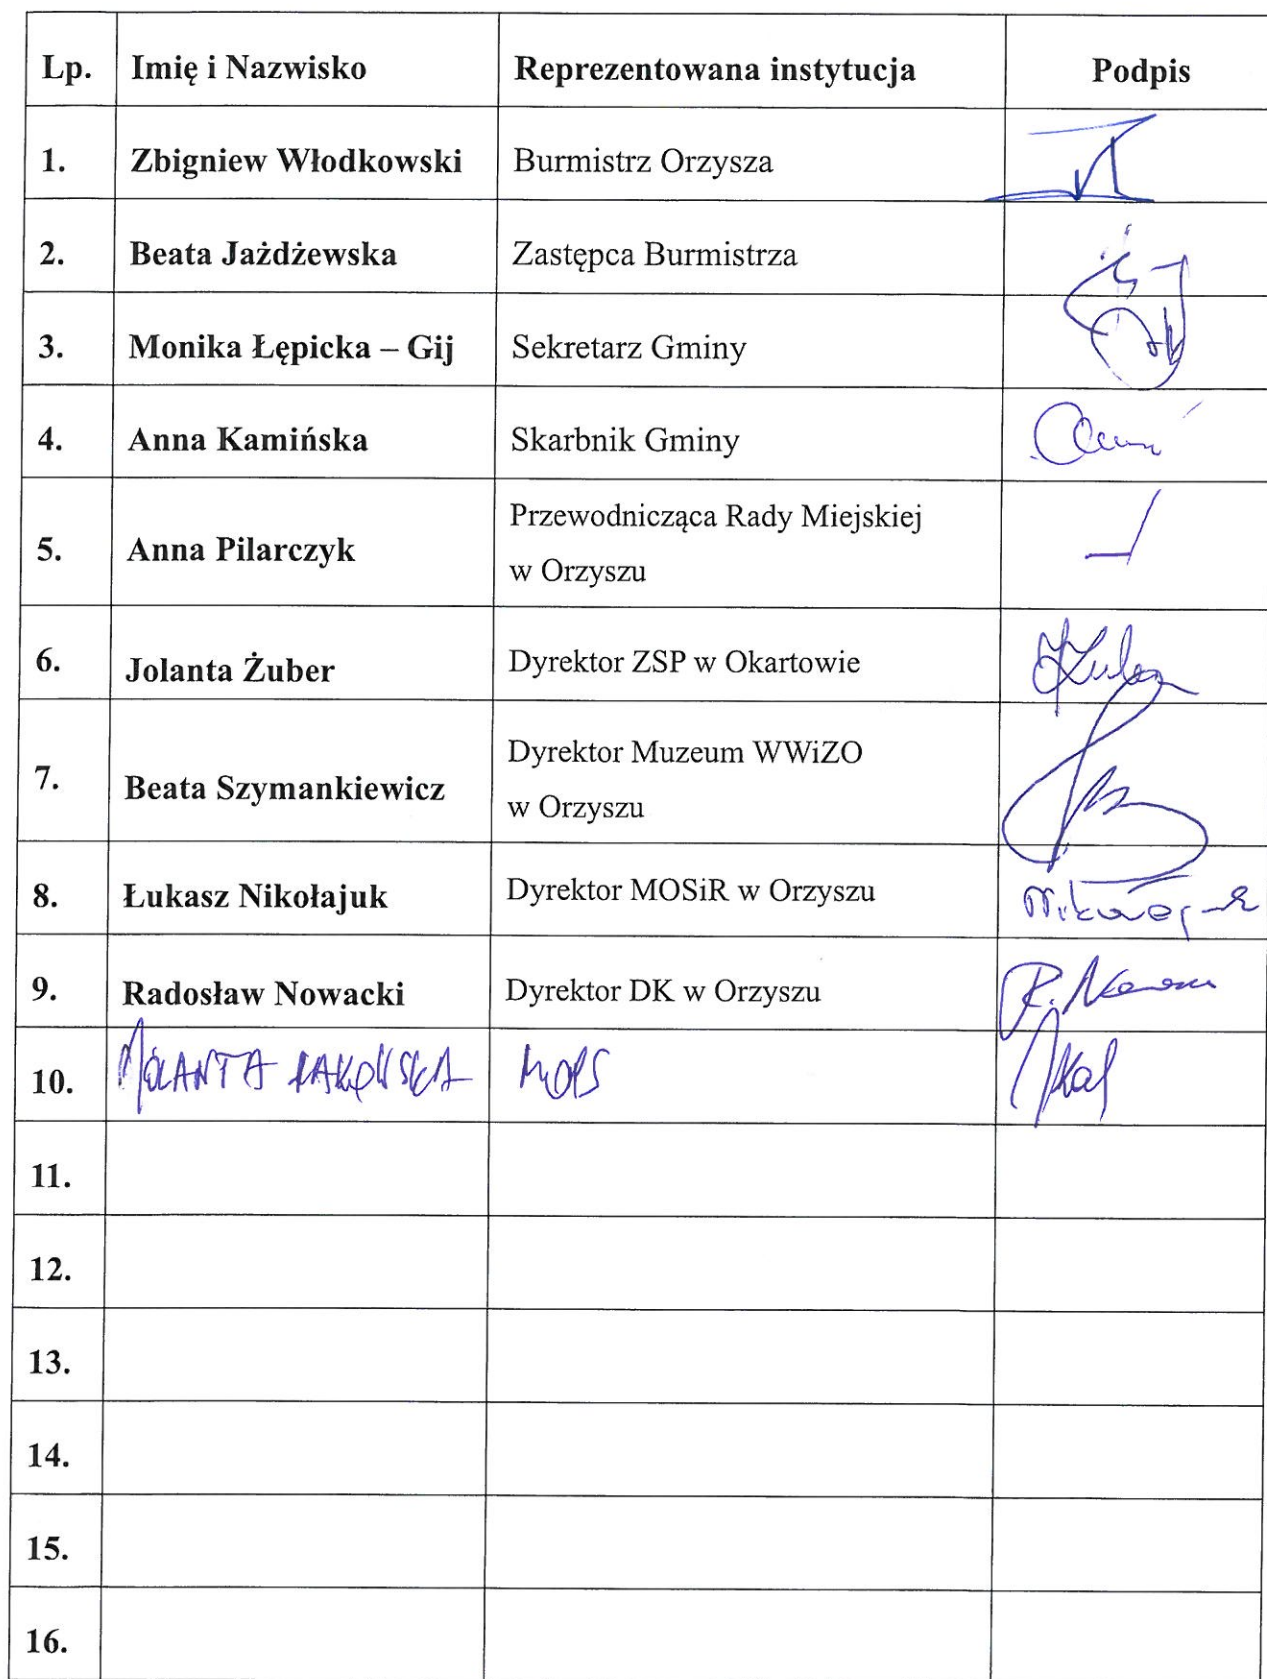 Lp. Imię i Nazwisko Reprezentowana instytucja Podpis
1. Zbigniew Włodkowski Burmistrz Orzysza
2. Beata Jażdżewska Zastępca Burmistrza
3. Monika Łępicka – Gij Sekretarz Gminy
4. Anna Kamińska Skarbnik Gminy
5. Anna Pilarczyk Przewodnicząca Rady Miejskiej
w Orzyszu
6. Jolanta Żuber Dyrektor ZSP w Okartowie
7. Beata Szymankiewicz Dyrektor Muzeum WWiZO
w Orzyszu
8. Łukasz Nikołajuk Dyrektor MOSiR w Orzyszu
9. Radosław Nowacki Dyrektor DK w Orzyszu
10. JOLANTA MOPS
11.
12.
13.
14.
15.
16.